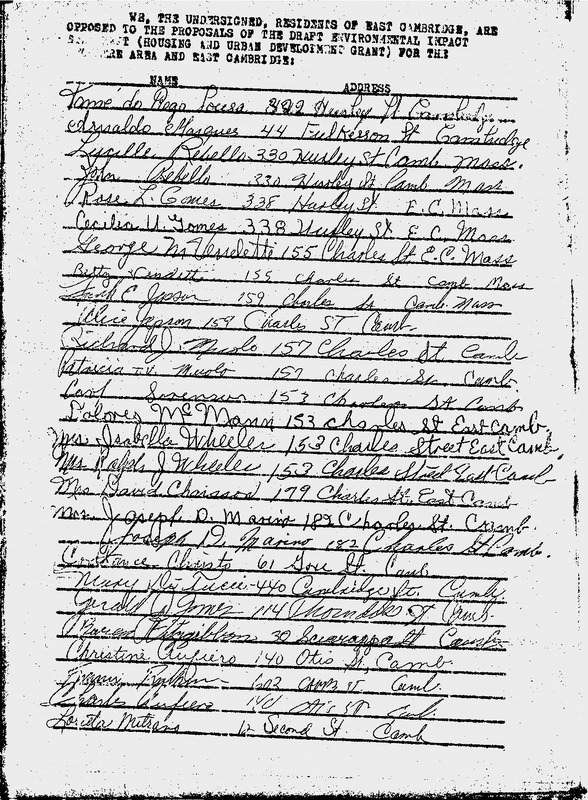 WE, THE UNDERSIGNED, RESIDENTS OF EAST CAMBRIDGE, ARE
OPPOSED TO THE PROPOSALS OF THE DRAFT ENVIRONMENTAL IMPACT
(HOUSING AND URBAN DEVELOPMENT GRANT) FOR THE
AREA AND EAST CAMBRIDGE:
NAME ADDRESS
do Rego Sousa 322 Hurley St
Marques 44 Fulkerson St Cambridge
Lucille Rebello 330 Hurley St Camb Mass.
John Rebello 330 Hurley St Camb Mass
Rose L. Gomes 338 Hurley St E. C. Mass
Cecilia U. Gomes 338 Hurley St E. C. Mass
George M 155 Charles St E.C. Mass
Betty 155 Charles St Camb Mass
E. Jepson 159 Charles St Camb. Mass
Alice Jepson 159 Charles ST Camb.
Richard J. Muolo 157 Charles St Camb
Patricia M. Muolo 157 Charles St. Camb.
Carl Sorenson 153 Charles St Camb
Dolores McMann 153 Charles St East Camb.
Mrs. Isabella Wheeler 153 Charles Street East Camb.
Mrs Ralph J Wheeler 153 Charles Street East Camb
Mrs David Chaisson 179 Charles St. East Camb
Mrs. Joseph D. Marino 182 Charles St. Camb.
Joseph D. Marino 182 Charles St Camb.
Constance Christo 61 Gore St. Camb
Mary 440 Cambridge St. Camb
Gerald Gomes 114 Thorndike St Camb.
Fitzgibbon 30 Sciarappa St Camb.
Christine Aufiero 140 Otis St, Camb.
CAMB ST Camb
Charles Aufiero 140 Otis ST
Loretta 12 Second St. Camb